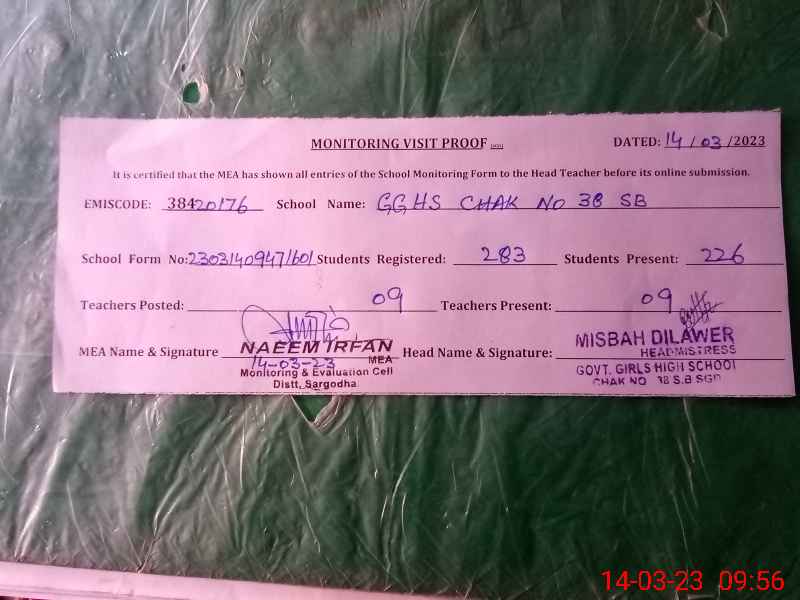 MONITORING VISIT PROOF
DATED: 14/03/2023
It is certified that the MEA has shown all entries of the School Monitoring Form to the Head Teacher before its online submission.
EMISCODE: 38420176 School Name: GGHS CHAK NO 38 SB
School Form No: 23031409471601 Students Registered: 283 Students Present: 226
Teachers Posted: 09 Teachers Present: 09
MEA Name & Signature NAEEM IRFAN Head Name & Signature: MISBAH DILAWER
14-03-23 MEA HEADMISTRESS
Monitoring & Evaluation Cell GOVT. GIRLS HIGH SCHOOL
Distt, Sargodha CHAK NO 38 S.B SGD
14-03-23 09:56